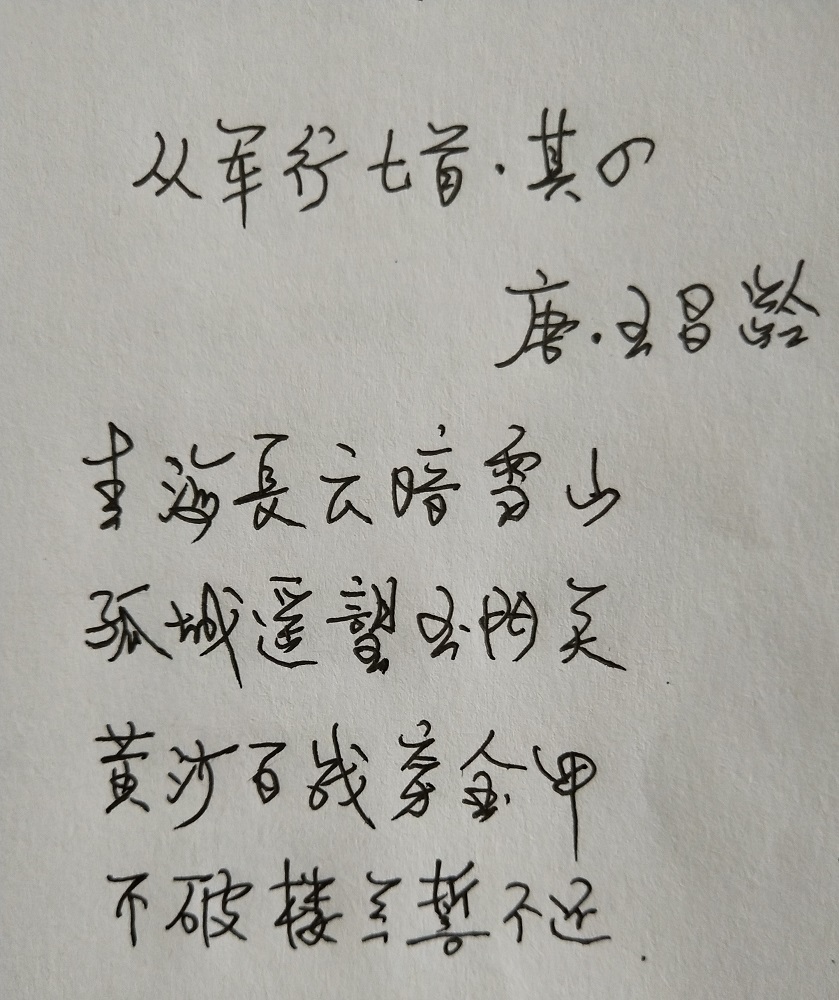 从军行七首·其四
唐·王昌龄
青海长云暗雪山
孤城遥望玉门关
黄沙百战穿金甲
不破楼兰誓不还.